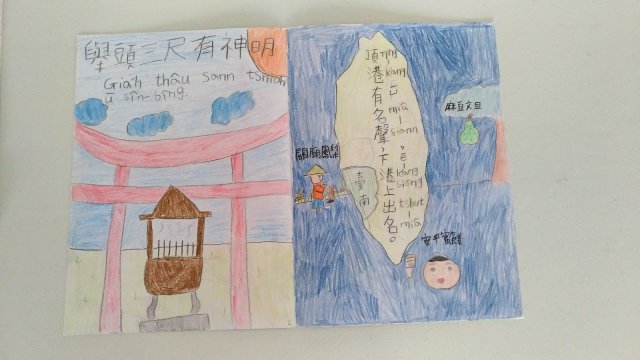 舉頭三尺有神明
Giah thâu sann tshioh
ū sîn-bîng.
頂港有名聲，下港上出名。
kang ū miâ-siann, ē-kang siōng tshut-miâ
麻豆文旦
關廟鳳梨
臺南
安平蜜餞